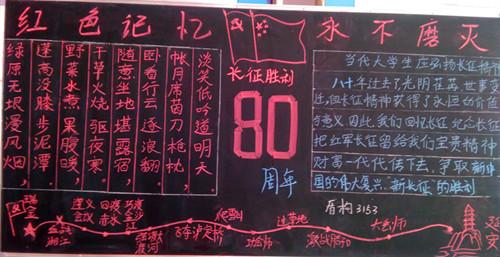 红色记忆 永不磨灭
绿原无垠漫风烟，
蓬高没膝步泥潭。
野菜水煮果腹暖，
干草火烧驱夜寒。
随意坐地堪露宿，
卧看行云逐浪翻。
帐月席茵刀枪枕，
淡笑低吟道明天。
长征胜利
80
周年
当代大学生应弘扬长征精神
八十年过去了，光阴荏苒，世事变
迁，但长征精神获得了永恒的价值
与意义。因此，我们回忆长征，纪念长征
把红军长征留给我们宝贵精神
财富一代代传下去，争取新中
国的伟大复兴，新长征的胜利
盾构3153
瑞金
血战湘江
遵义会议
四渡赤水
巧渡金沙江
强渡大渡河
飞夺泸定桥
爬雪山
过草地
激战腊子口
大会师